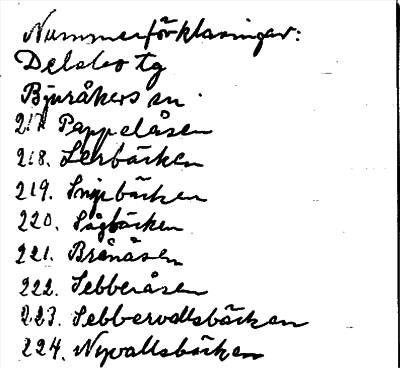 Nummerförklaringar:
Delsbo tg
Bjuråkers sn.
217 Pappelåsen
218. Lerbäcken
219. Snipbäcken
220. Sågbäcken
221. Brånåsen
222. Sebberåsen
223. Sebbervallsbäcken
224. Nyvallsbäcken